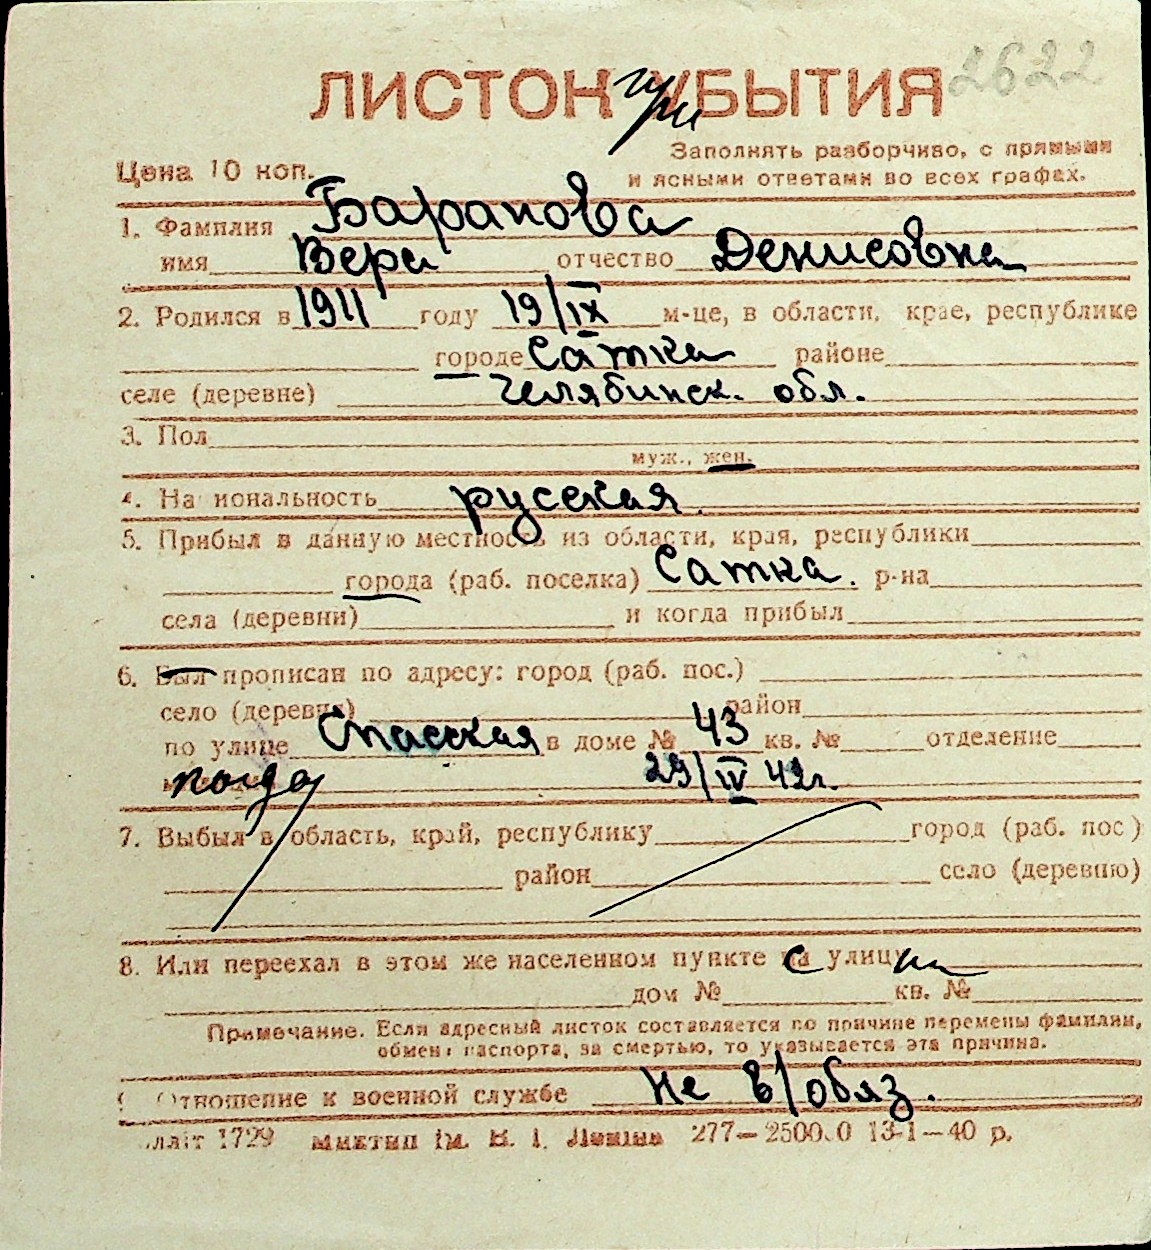 2622
ЛИСТОК УБЫТИЯ
при
Заполнять разборчиво, с прямыми
Цена 10 коп. и ясными ответами во всех графах.
1. Фамилия Баранова
имя Вера отчество Денисовна
2. Родился в 1911 году 19/IX м-це, в области, крае, республике
городе Сатка районе
селе (деревне) Челябинск. обл.
3. Пол
муж., жен.
4. Национальность русская.
5. Прибыл в данную местность из области, края, республики
города (раб. поселка) Сатка. р-на
села (деревни) и когда прибыл
6. Был прописан по адресу: город (раб. пос.)
село (деревня) район
по улице Спасская в доме № 43 кв. № отделение
29/IV 42г.
7. Выбыл в область, край, республику город (раб. пос)
район село (деревню)
8. Или переехал в этом же населенном пункте с улицы
дом № кв. №
Примечание. Если адресный листок составляется по причине перемены фамилии,
обмена паспорта, за смертью, то указывается эта причина.
Отношение к военной службе не в/обяз.
1729 им. В. І. Леніна 277—2500.0 13-1—40 р.